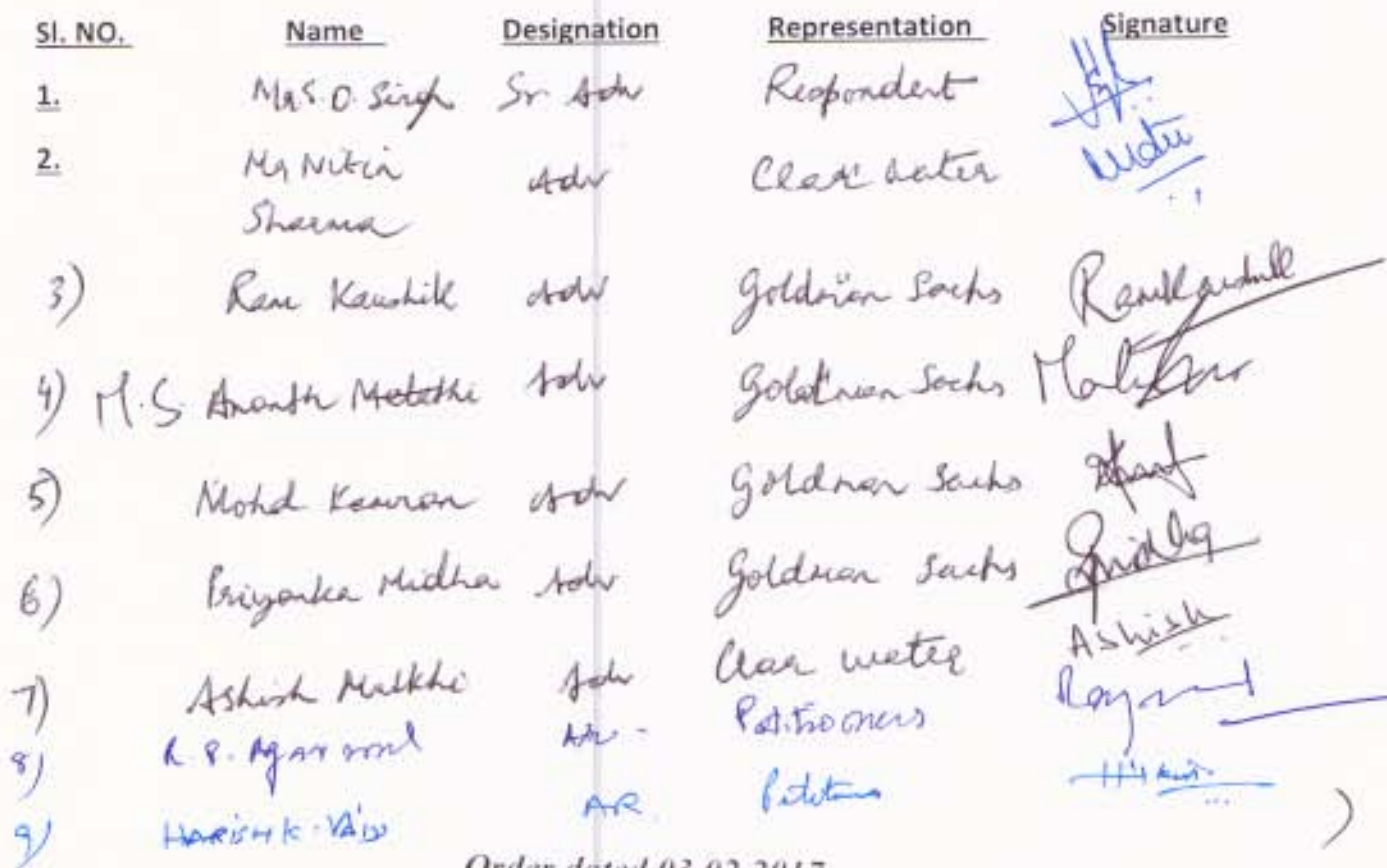 Sl. NO. Name Designation Representation Signature
1. Mr S. D. Singh Sr Adv Respondent
2. Mr Nitin Adv Clear water
Sharma
3) Ram Kaushik Adv Goldman Sachs
4) M.S. Ananth Adv Goldman Sachs
5) Mohd Kamran Adv Goldman Sachs
6) Priyanka Midha Adv Goldman Sachs
7) Ashish Adv Clear water Ashish
8) R. P. Agarwal Adv - Petitioners
9) HARISH K. AR
Order dated 03.02.2017